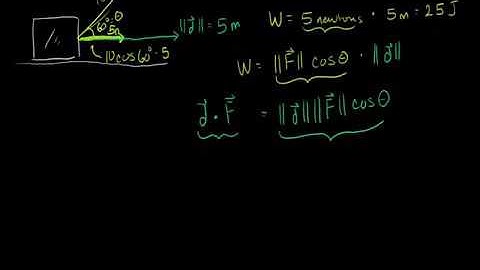 60° θ
5n
10 cos 60° = 5
‖d⃗‖ = 5 m
W = 5 newtons · 5 m = 25 J
W = ‖F⃗‖ cos θ · ‖d⃗‖
d⃗ · F⃗ = ‖d⃗‖ ‖F⃗‖ cos θ